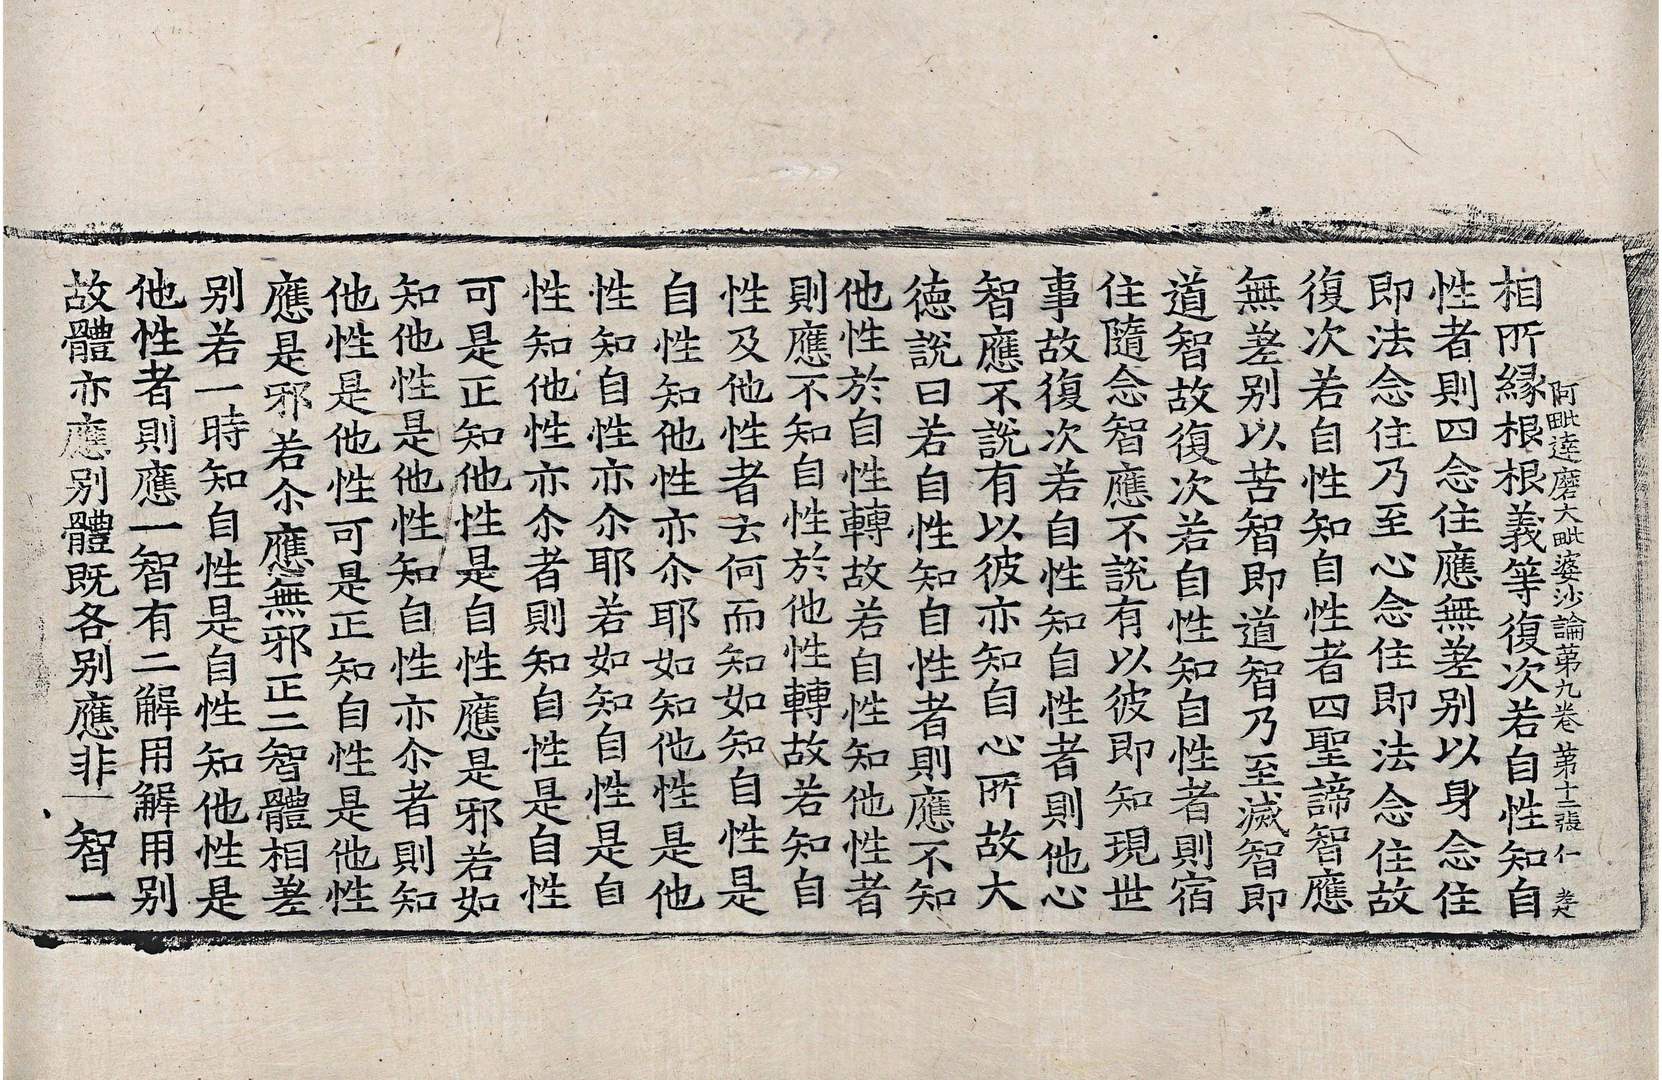 阿毗達磨大毗婆沙論第九卷 第十二張 仁
相所縁根根義等復次若自性知自
性者則四念住應無差别以身念住
即法念住乃至心念住即法念住故
復次若自性知自性者四聖諦智應
無差别以苦智即道智乃至滅智即
道智故復次若自性知自性者則宿
住隨念智應不説有以彼即知現世
事故復次若自性知自性者則他心
智應不説有以彼亦知自心所故大
徳説曰若自性知自性者則應不知
他性於自性轉故若自性知他性者
則應不知自性於他性轉故若知自
性及他性者云何而知如知自性是
自性知他性亦尒耶如知他性是他
性知自性亦尒耶若如知自性是自
性知他性亦尒者則知自性是自性
可是正知他性是自性應是邪若如
知他性是他性知自性亦尒者則知
他性是他性可是正知自性是他性
應是邪若尒應無邪正二智體相差
别若一時知自性是自性知他性是
他性者則應一智有二解用解用别
故體亦應别體既各别應非一智一